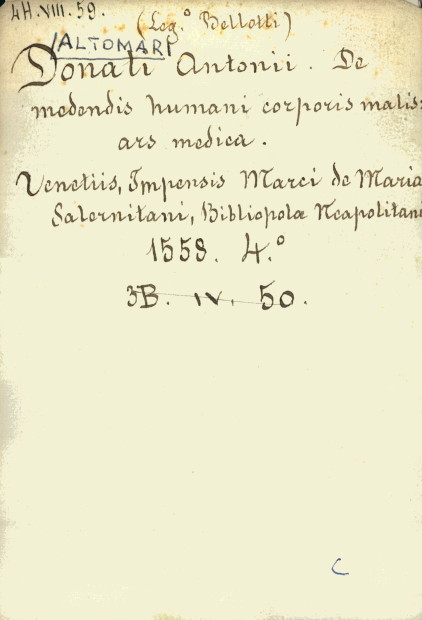 4H.VIII.59.
(Leg.º Bellotti)
/ALTOMARI
Donati Antonii. De
medendis humani corporis malis:
ars medica.
Venetiis, Impensis Marci de Maria
Salernitani, Bibliopolæ Neapolitani
1558. 4.º
3B. IV. 50.
C